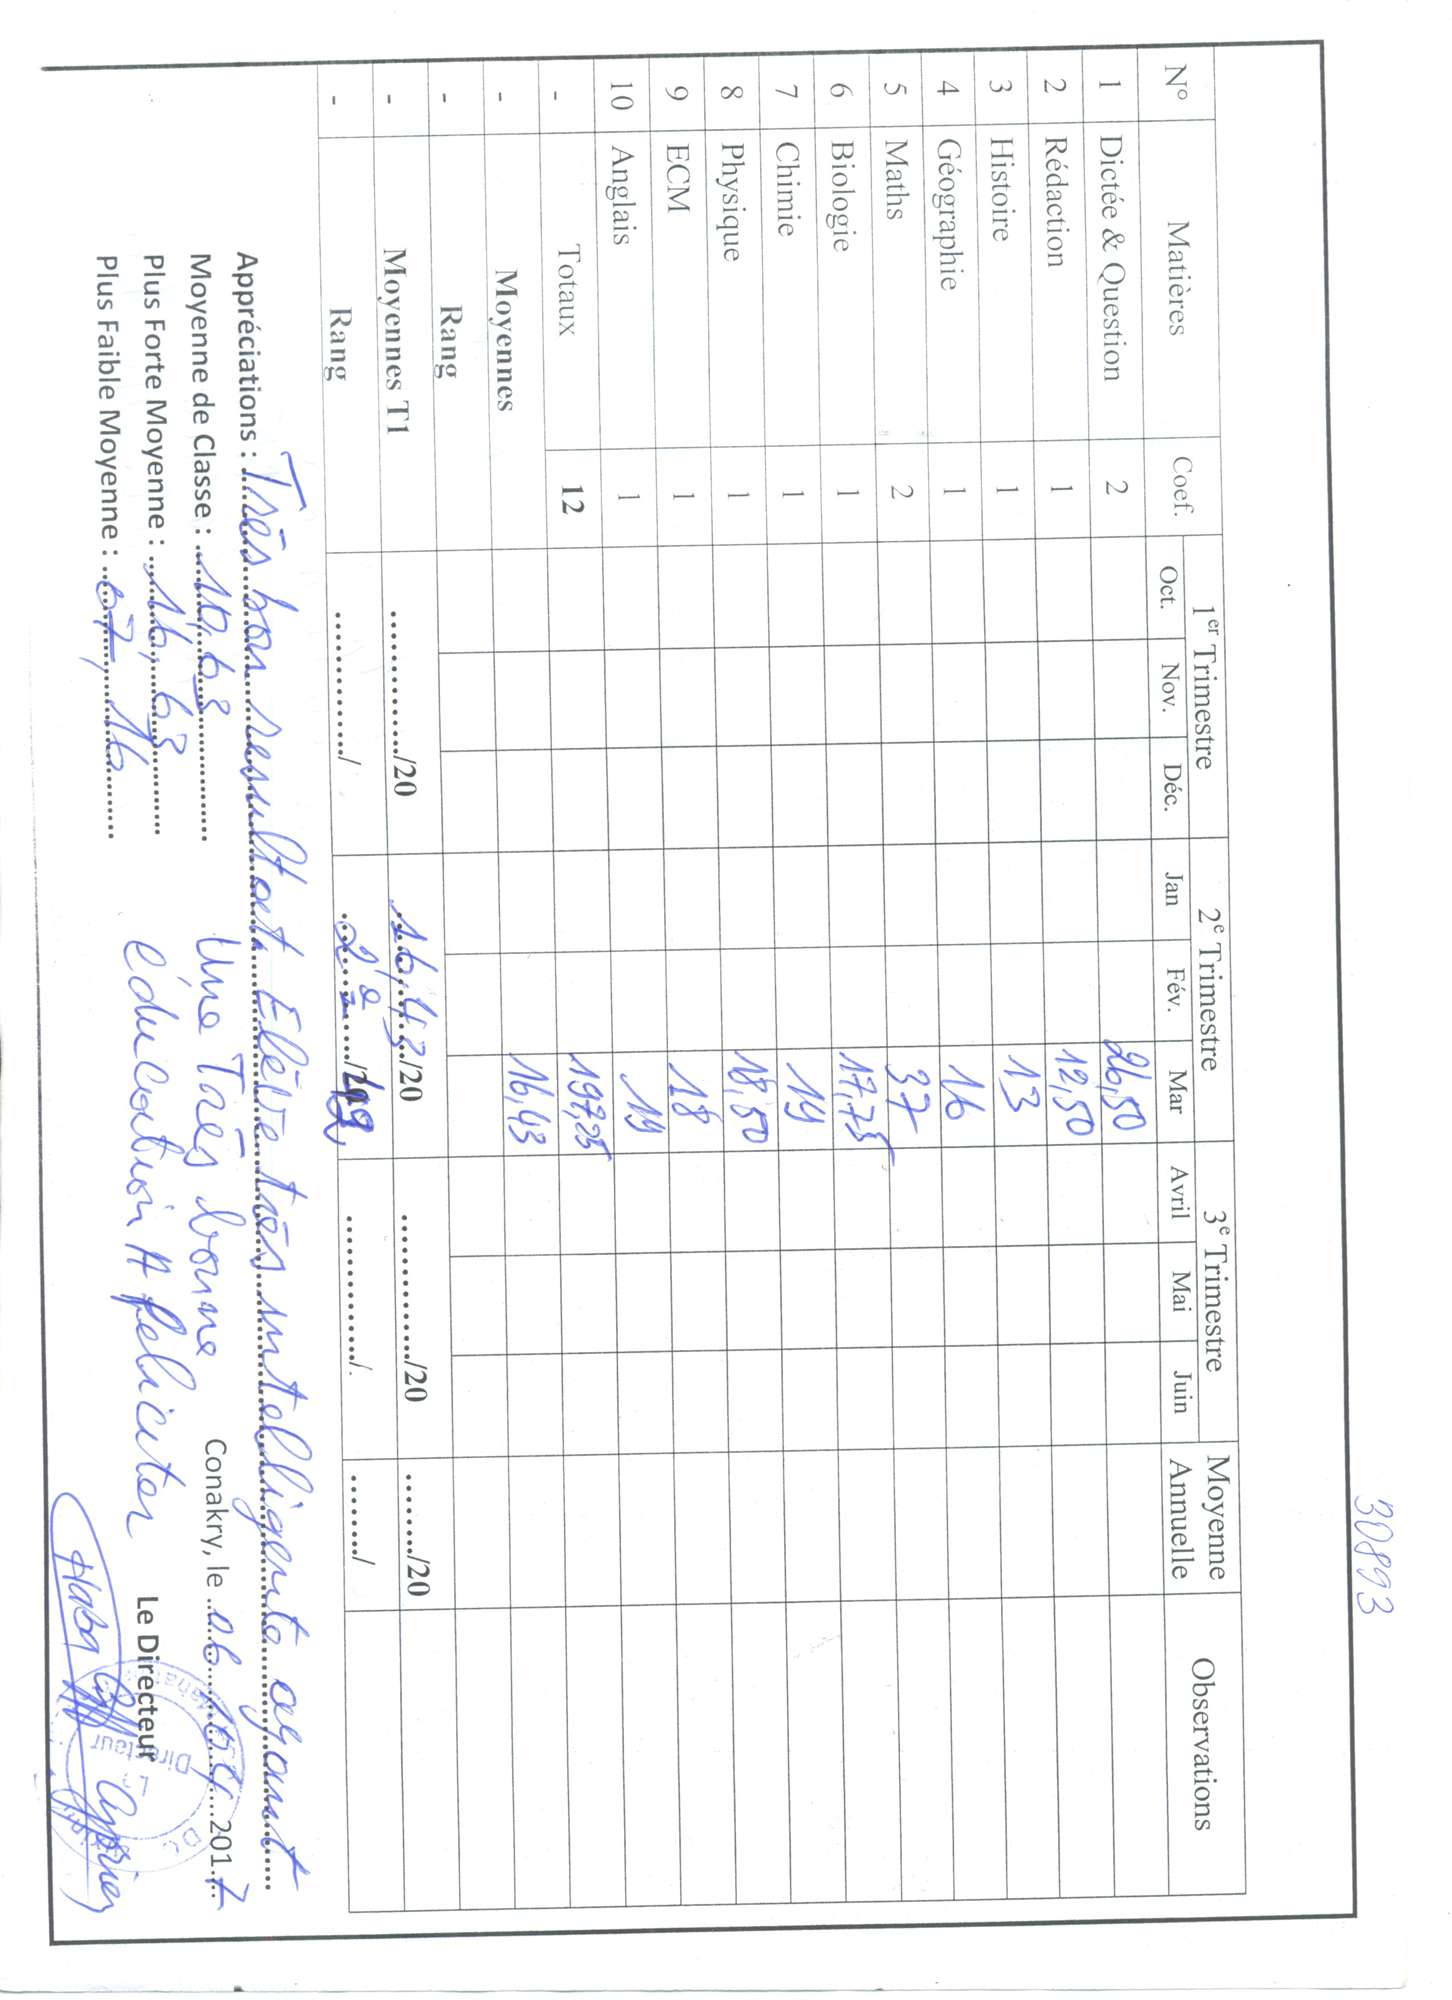 30893
N° Matières Coef. 1er Trimestre 2e Trimestre 3e Trimestre Moyenne Annuelle Observations
Oct. Nov. Déc. Jan Fév. Mar Avril Mai Juin
1 Dictée & Question 2 26,50
2 Rédaction 1 12,50
3 Histoire 1 13
4 Géographie 1 16
5 Maths 2 37
6 Biologie 1 17,75
7 Chimie 1 19
8 Physique 1 18,50
9 ECM 1 18
10 Anglais 1 19
- Totaux 12 197,25
- Moyennes 16,43
- Rang
- Moyennes T1 ............./20 16,43/20 ............./20 ........./20
- Rang ............./ 2e / ............./ ......../
Appréciations : Très bon resultat. Elève très intelligente ayant
Moyenne de Classe : 10,63 Une Très bonne Conakry, le 06 2017
Plus Forte Moyenne : 16,63 éducation A feliciter Le Directeur
Plus Faible Moyenne : 07,16
Directeur